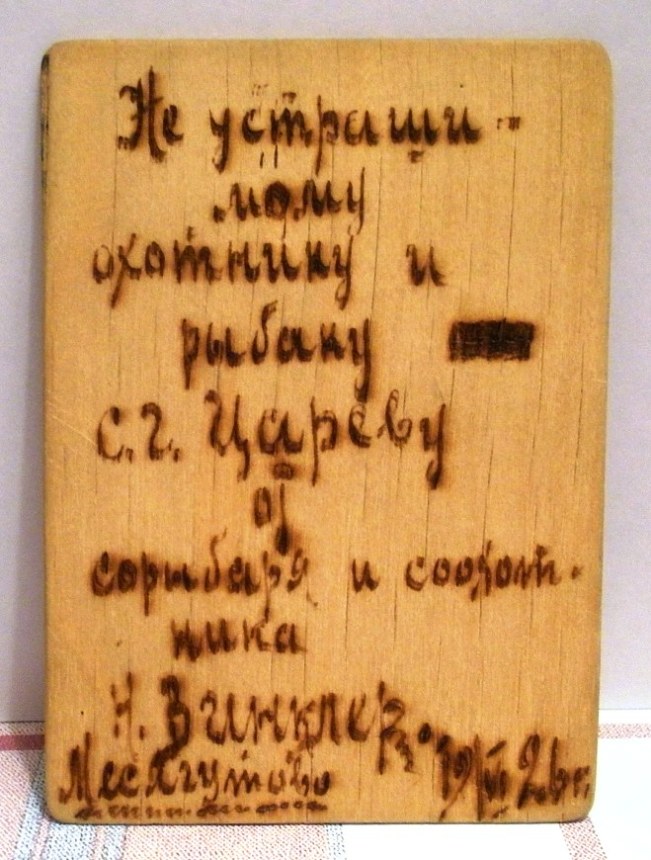 Не устраши-
мому
охотнику и
рыбаку
С.Г. Цареву
от
сорыбаря и соохот-
ника
Н. Винклер
Месягутово 19 26 г.